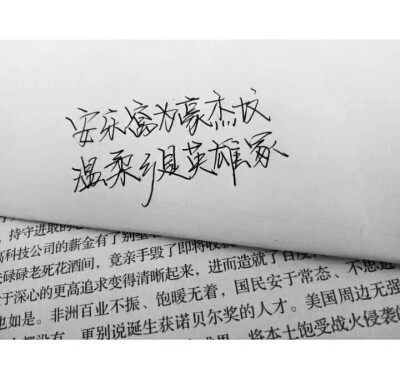 安乐窝为豪杰坟
温柔乡是英雄冢
、持守进取的
高科技公司的薪金有了别
碌碌老死花酒间，竟亲手毁了即将收
于深心的更高追求变得清晰起来，进而造就了百度
也如是。非洲百业不振、饱暖无着，国民安于常态、不想
都没有，更别说诞生获诺贝尔奖的人才。美国周边无强
将本土饱受战火侵袭